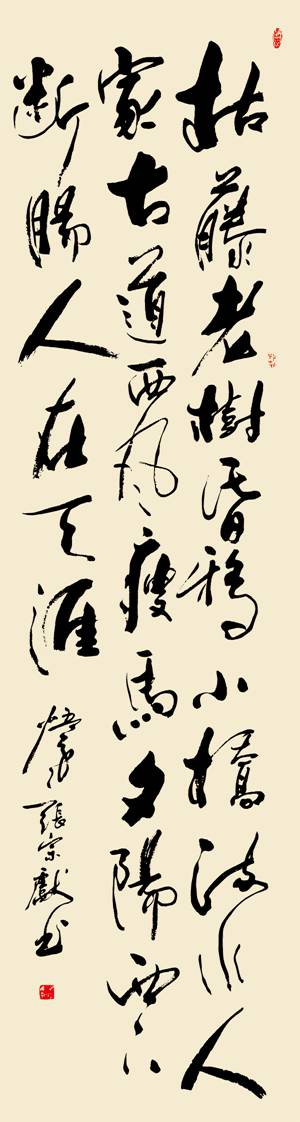 枯藤老樹昏鴉小橋流水人
家古道西风瘦馬夕陽西下
断腸人在天涯
張宗獻书